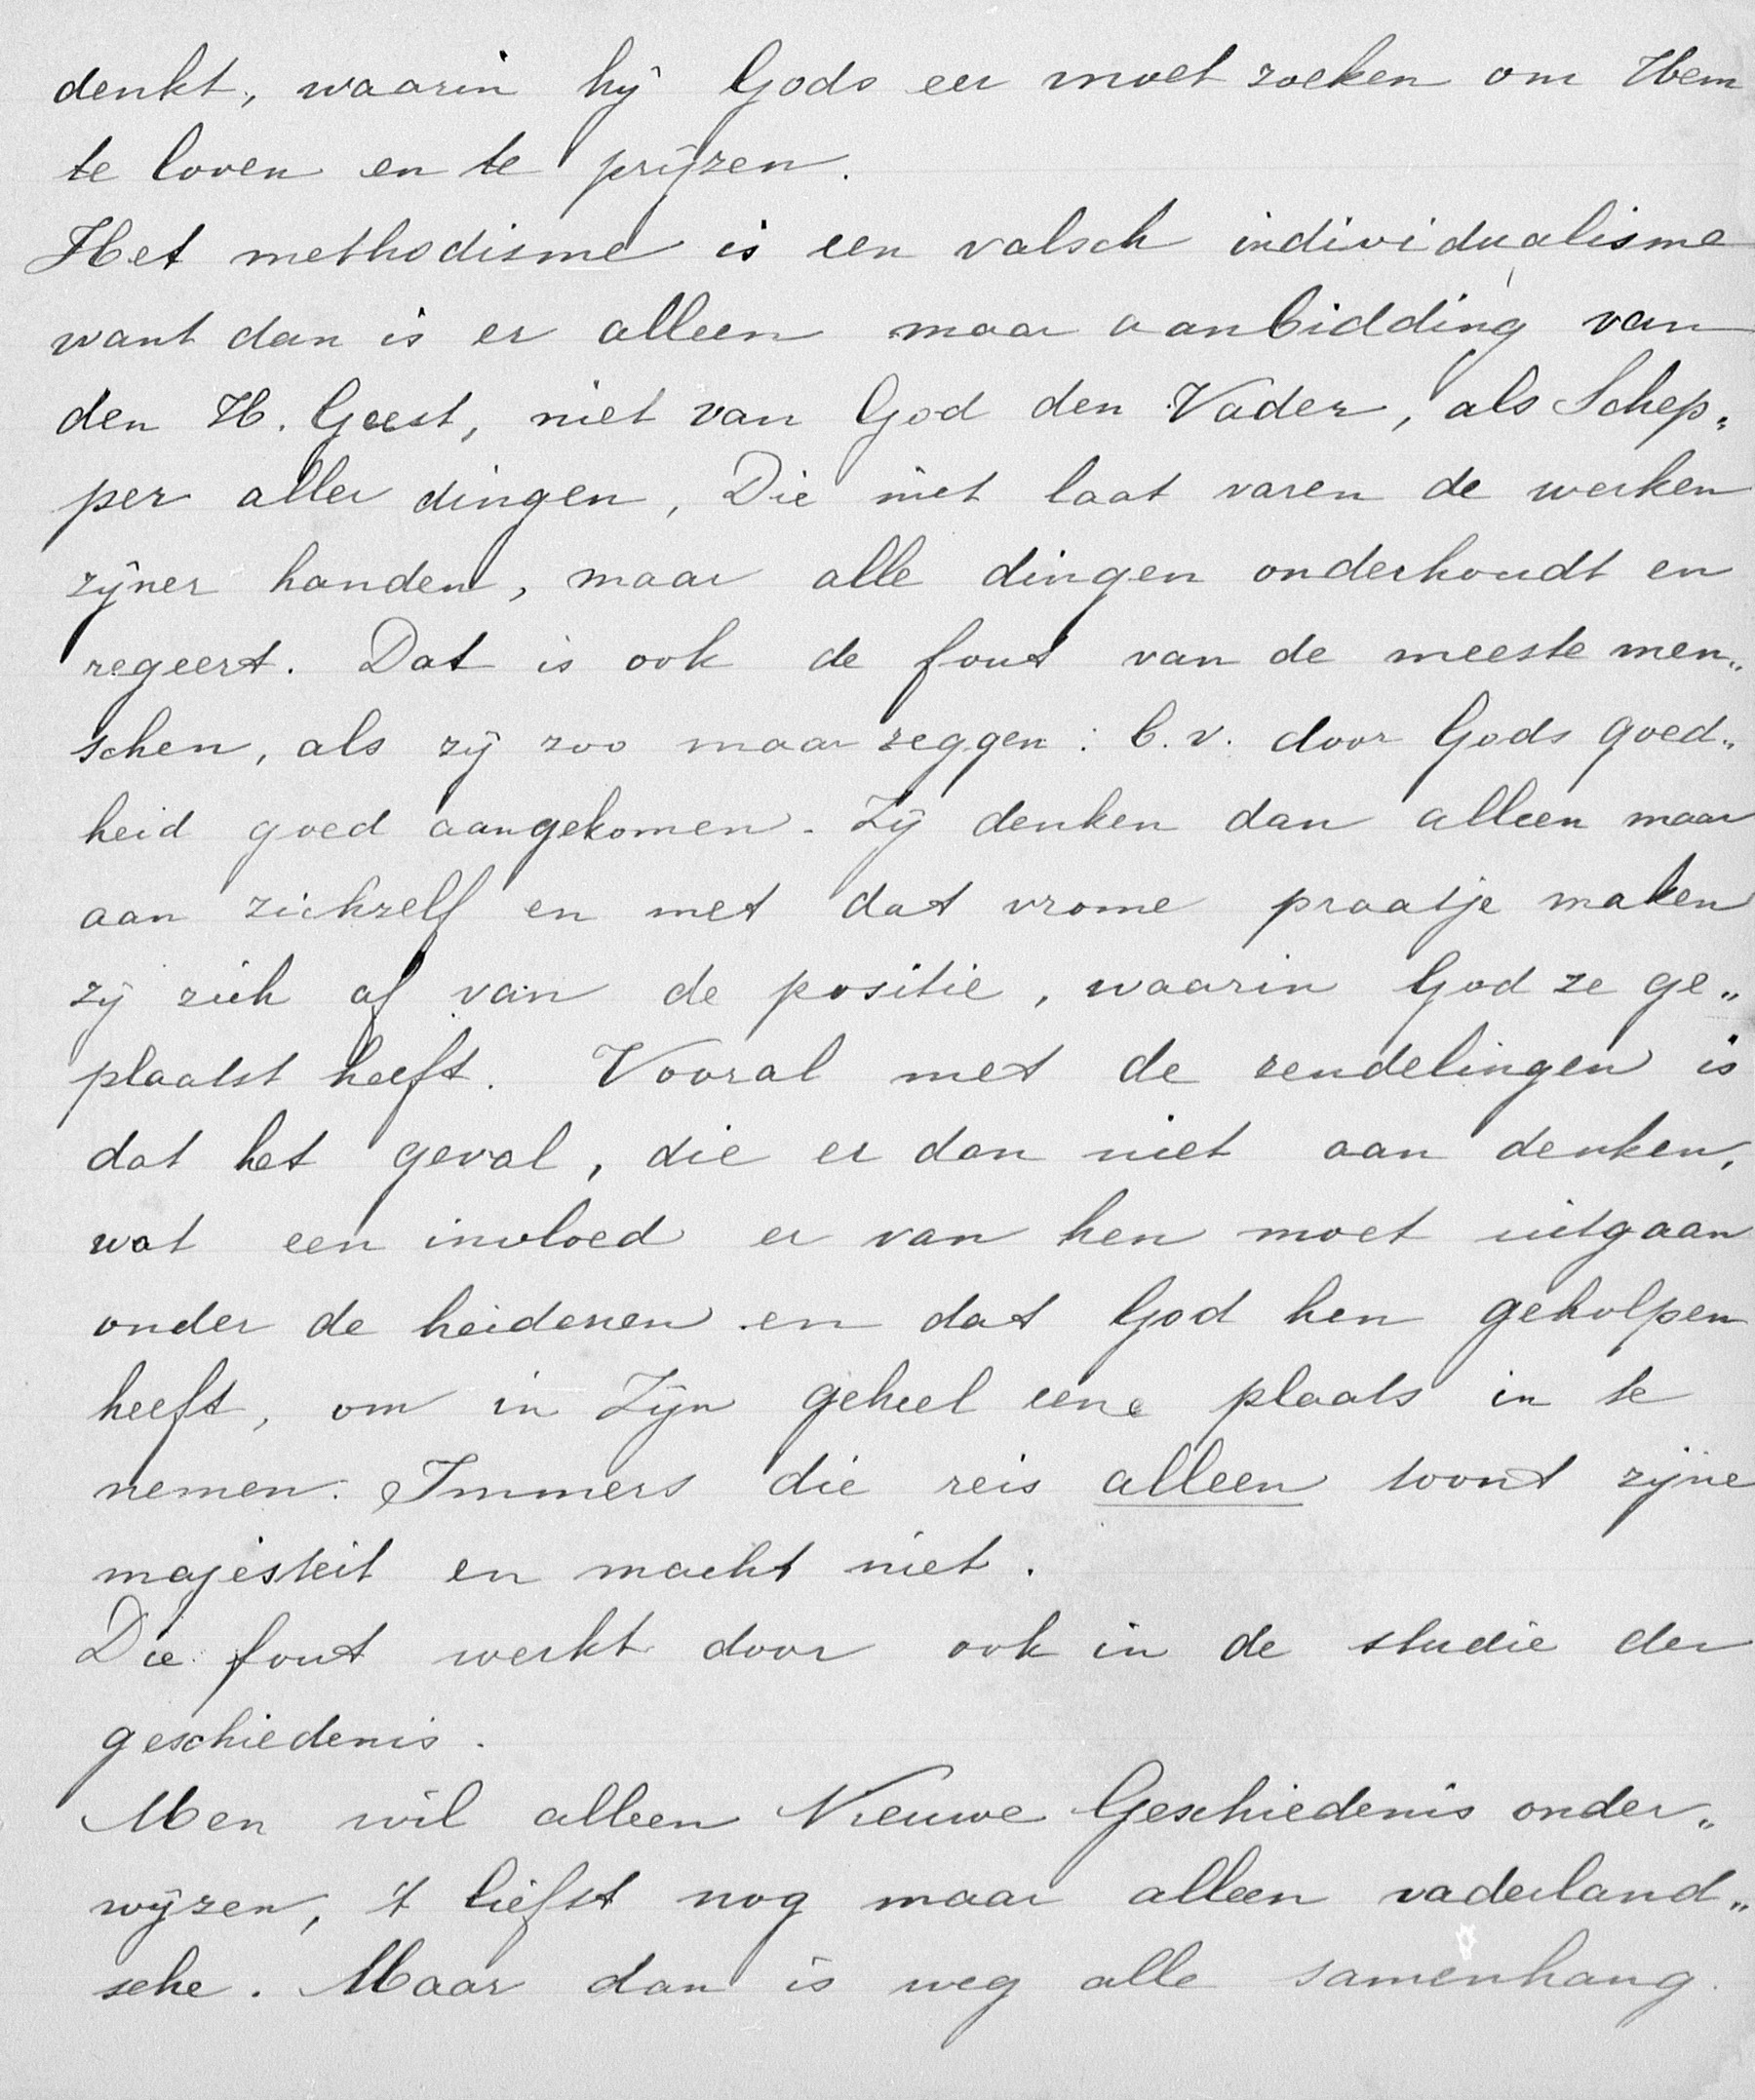 denkt, waarin hij Gods eer moet zoeken om Hem
te loven en te prijzen.
Het methodisme is een valsch individualisme
want dan is er alleen maar aanbidding van
den H. Geest, niet van God den Vader, als Schep„
per aller dingen, Die niet laat varen de werken
zijner handen, maar alle dingen onderhoudt en
regeert. Dat is ook de fout van de meeste men„
schen, als zij zoo maar zeggen: b.v. door Gods goed„
heid goed aangekomen. Zij denken dan alleen maar
aan zichzelf en met dat vrome praatje maken
zij zich af van de positie, waarin God ze ge„
plaatst heeft. Vooral met de zendelingen is
dat het geval, die er dan niet aan denken,
wat een invloed er van hen moet uitgaan
onder de heidenen en dat God hen geholpen
heeft, om in Zijn geheel eene plaats in te
nemen. Immers die reis alleen toont zijne
majesteit en macht niet.
Die fout werkt door ook in de studie der
geschiedenis.
Men wil alleen Nieuwe Geschiedenis onder„
wijzen, 't liefst nog maar alleen vaderland„
sche. Maar dan is weg alle samenhang.